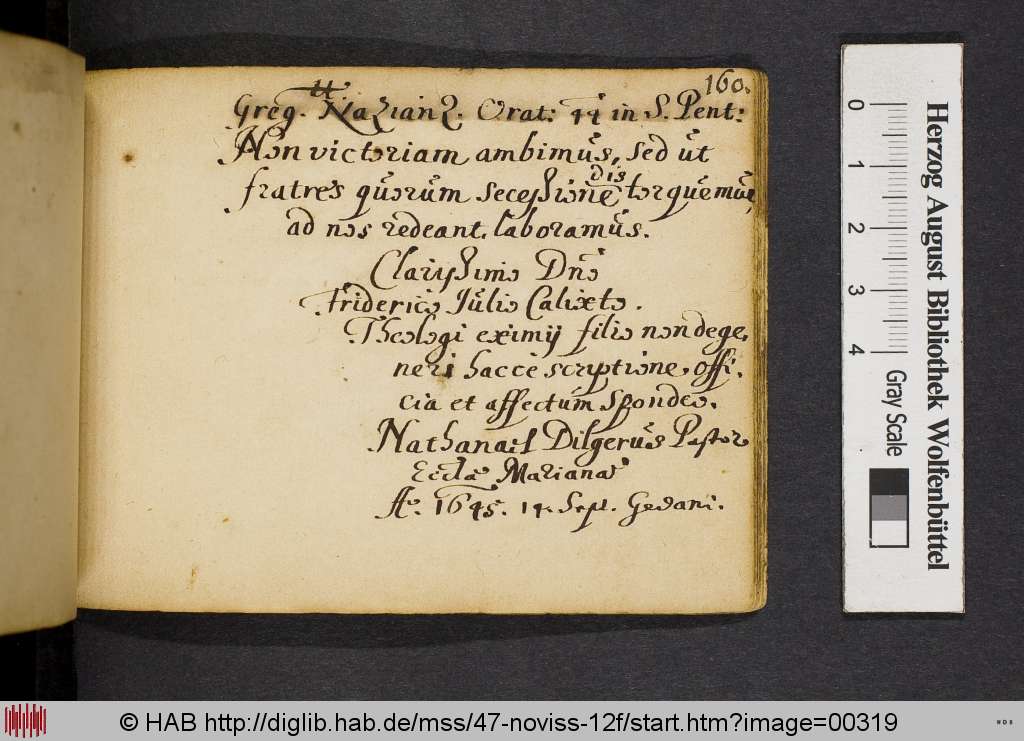 160.
Greg. Nazianz. Orat: 44 in S. Pent:
Non victoriam ambimus, sed ut
dis
fratres quorum secessione torquemur,
ad nos redeant, laboramus.
Clarissimo Dno
Friderico Julio Calixto.
Theologi eximij filio non dege,
neri hacce scriptione, offi,
cia et affectum spondeo.
Nathanael Dilgerus Pastor
Eccla Mariana
Ao. 1645. 14. Sept. Gedani.
Herzog August Bibliothek Wolfenbüttel
0 1 2 3 4
Gray Scale
© HAB http://diglib.hab.de/mss/47-noviss-12f/start.htm?image=00319